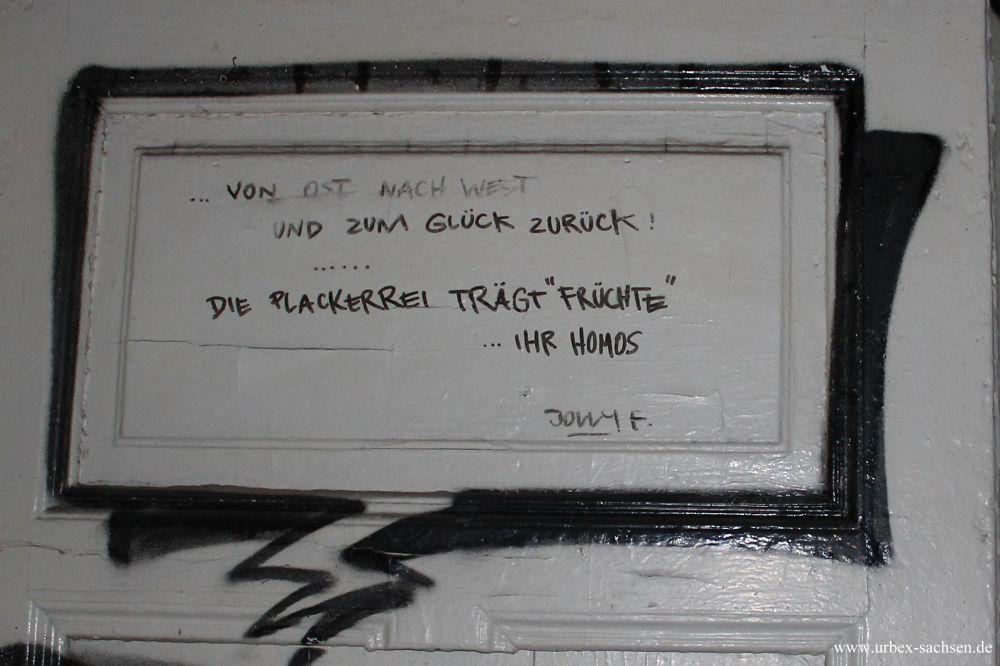 ... VON OST NACH WEST
UND ZUM GLÜCK ZURÜCK!
......
DIE PLACKERREI TRÄGT "FRÜCHTE"
... IHR HOMOS
F.
www.urbex-sachsen.de